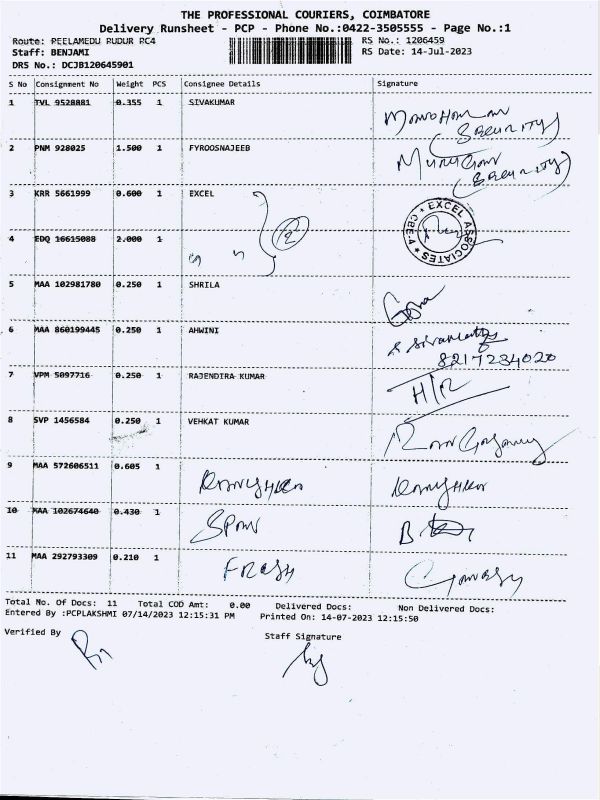 THE PROFESSIONAL COURIERS, COIMBATORE
Delivery Runsheet - PCP - Phone No.:0422-3505555 - Page No.:1
Route: PEELAMEDU PUDUR PC4
RS No.: 1206459
Staff: BENJAMI
RS Date: 14-Jul-2023
DRS No.: DCJB120645901
S No Consignment No Weight PCS Consignee Details Signature
1 TVL 9528881 0.355 1 SIVAKUMAR
MANOHARAN
(SECURITY)
2 PNM 928025 1.500 1 FYROOSNAJEEB
MURUGAN
(SECURITY)
3 KRR 5661999 0.600 1 EXCEL
2
EXCEL ASSOCIATES CBE-4
4 EDQ 16615088 2.000 1
5 MAA 102981780 0.250 1 SHRILA
6 MAA 860199445 0.250 1 AHWINI
8217234020
7 VPM 5097716 0.250 1 RAJENDIRA KUMAR
H/R
8 SVP 1456584 0.250 1 VEHKAT KUMAR
9 MAA 572606511 0.605 1
10 MAA 102674640 0.430 1
11 MAA 292793309 0.210 1 FRESH
Total No. Of Docs: 11 Total COD Amt: 0.00 Delivered Docs: Non Delivered Docs:
Entered By :PCPLAKSHMI 07/14/2023 12:15:31 PM Printed On: 14-07-2023 12:15:50
Verified By
Staff Signature